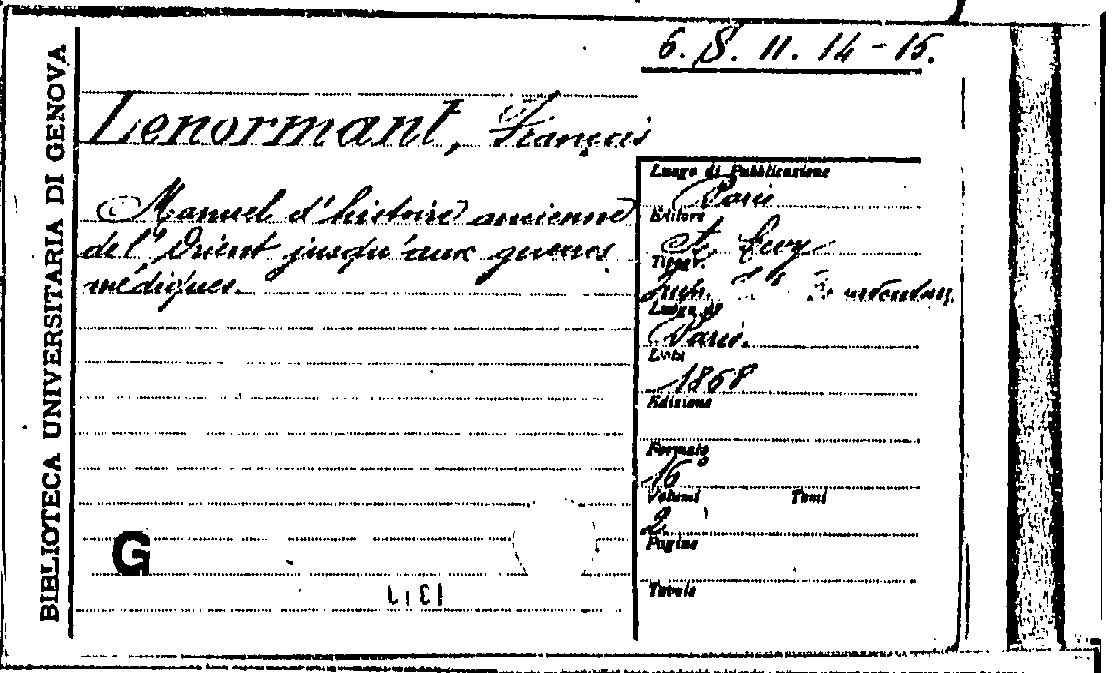 BIBLIOTECA UNIVERSITARIA DI GENOVA
6. S. 11. 14-15.
Lenormant, François
Manuel d'histoire ancienne
de l'Orient jusqu'aux guerres
médiques.
Luogo di Pubblicazione
Paris
Editore
A. Levy
Tipogr.
Luogo di
Paris.
Data
1868
Edizione
Formato
16°
Volumi Tomi
2
Pagine
Tavole
G